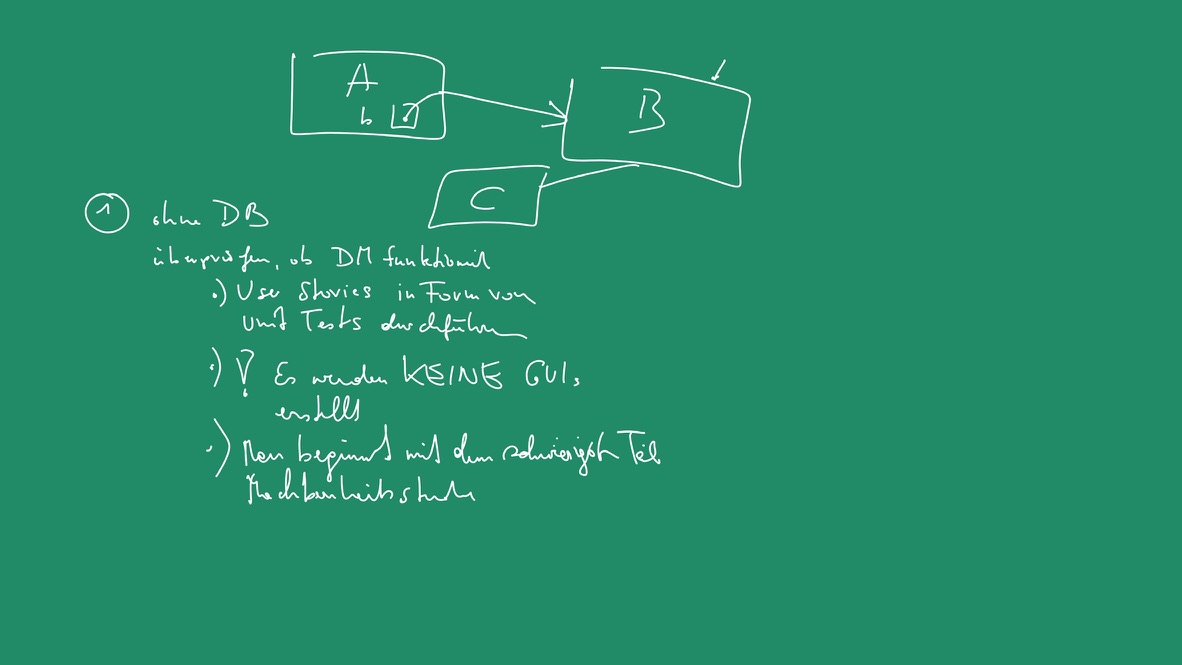 A
b
B
C
1 ohne DB
überprüfen, ob DM funktioniert
.) User Stories in Form von
Unit Tests durchführen
.) ! Es werden KEINE GUIs
erstellt
.) Man beginnt mit dem schwierigsten Teil
Machbarkeitsstudie